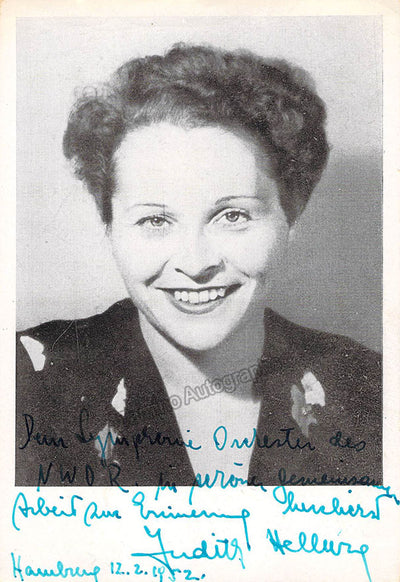 Dem Symphonie Orchester des
NWDR. schöne gemeinsame
Arbeit zur Erinnerung herzlichst
Judith Hellwig
Hamburg 12.2.1952.